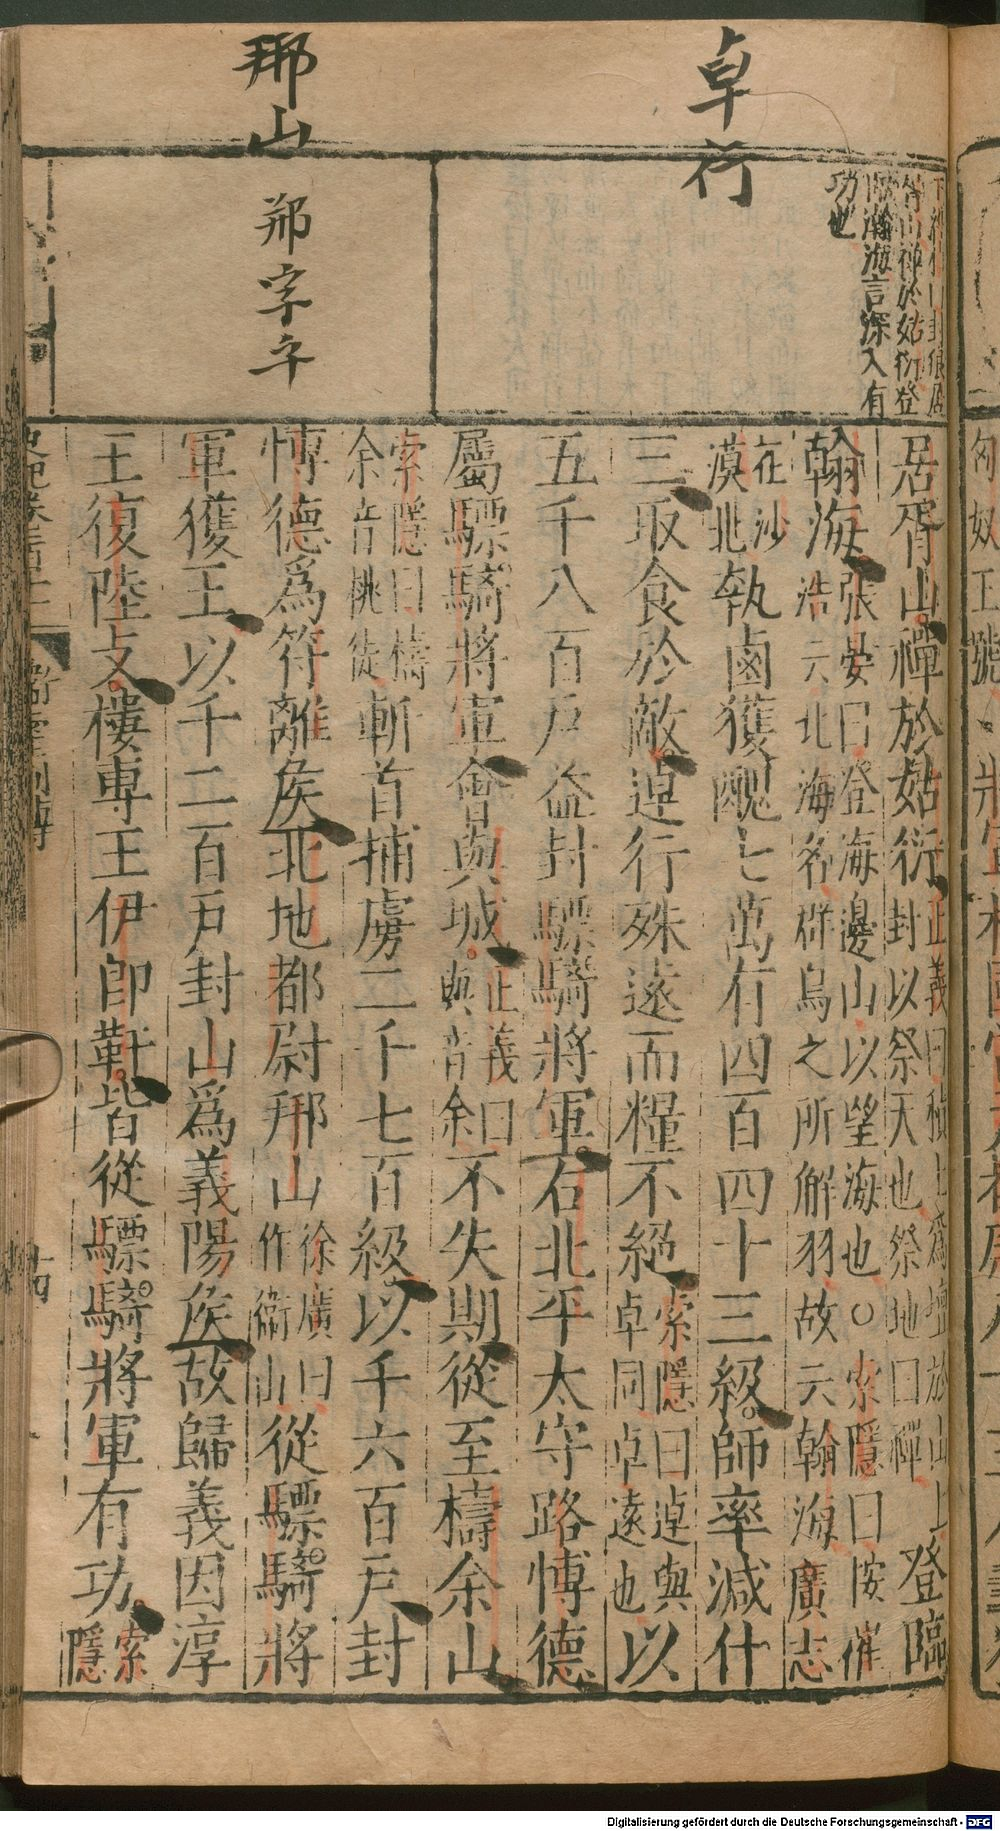 卓行
那山
邢字午
翰海言深入有
功也
居胥山禪於姑衍正義曰積土爲壇於山上封以祭天也祭地曰禪登臨
翰海張晏曰登海邊山以望海也○索隱曰按崔浩云北海名群鳥之所解羽故云翰海廣志
在沙漠北執鹵獲醜七萬有四百四十三級師率減什
三取食於敵逴行殊遠而糧不絕索隱曰逴與卓同卓遠也以
五千八百戶益封驃騎將軍右北平太守路博德
屬驃騎將軍會與城正義曰與音余不失期從至檮余山
索隱曰檮余音桃徒斬首捕虜二千七百級以千六百戶封
博德爲符離侯北地都尉邢山徐廣曰作衛山從驃騎將
軍獲王以千二百戶封山爲義陽侯故歸義因淳
王復陸支樓專王伊即靬皆從驃騎將軍有功索隱
衛霍列傳
十四
匈奴王號
Digitalisierung gefördert durch die Deutsche Forschungsgemeinschaft - DFG